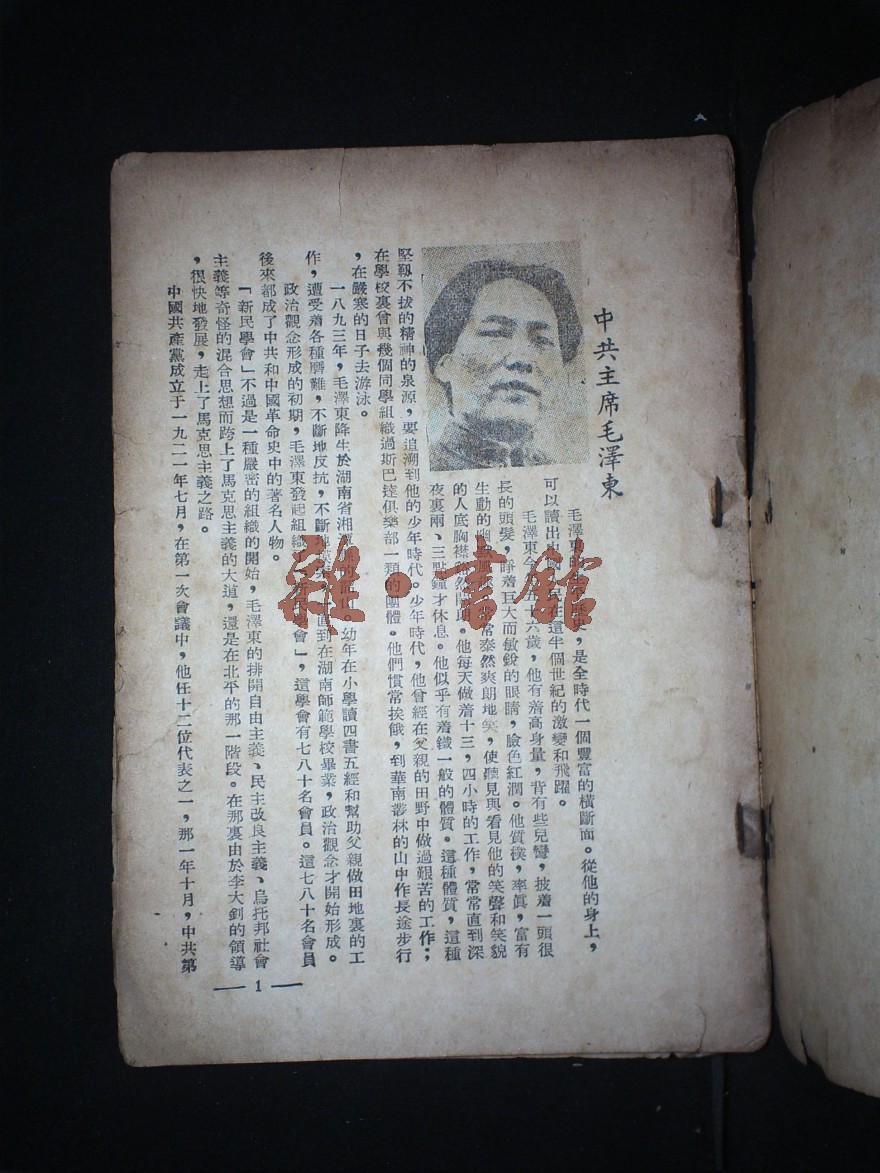 中共主席毛澤東
毛澤東的歷史,是全時代一個豐富的橫斷面。從他的身上,
可以讀出中國人民在這半個世紀的激變和飛躍。
毛澤東今年五十六歲,他有着高身量,背有些兒彎,披着一頭很
長的頭髮,睜着巨大而敏銳的眼睛,臉色紅潤。他質樸,率眞,富有
生動的幽默風趣,常常泰然爽朗地笑,使聽見與看見他的笑聲和笑貌
的人底胸襟豁然開朗。他每天做着十三,四小時的工作,常常直到深
夜裏兩、三點鐘才休息。他似乎有着鐵一般的體質。這種體質,這種
堅靱不拔的精神的泉源,要追溯到他的少年時代。少年時代,他曾經在父親的田野中做過艱苦的工作;
在學校裏曾與幾個同學組織過斯巴達俱樂部一類的團體。他們慣常挨餓,到華南叢林的山中作長途步行
,在嚴寒的日子去游泳。
一八九三年,毛澤東降生於湖南省湘潭縣的韶山。幼年在小學讀四書五經和幫助父親做田地裏的工
作,遭受着各種磨難,不斷地反抗,不斷地直到在湖南師範學校畢業,政治觀念才開始形成。
政治觀念形成的初期,毛澤東發起組織「新民學會」,這學會有七八十名會員。這七八十名會員
後來都成了中共和中國革命史中的著名人物。
「新民學會」不過是一種嚴密的組織的開始,毛澤東的排開自由主義、民主改良主義、烏托邦社會
主義等奇怪的混合思想而跨上了馬克思主義的大道,還是在北平的那一階段。在那裏由於李大釗的領導
,很快地發展,走上了馬克思主義之路。
中國共產黨成立于一九二一年七月,在第一次會議中,他任十二位代表之一,那一年十月,中共第
— 1 —
雜·書館